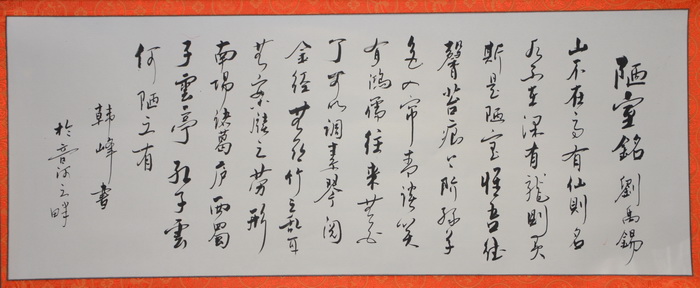 陋室銘 劉禹錫
山不在高有仙則名
水不在深有龍則灵
斯是陋室惟吾德
馨苔痕上阶绿草
色入帘青谈笑
有鴻儒往来無白
丁可以調素琴阅
金经無丝竹之乱耳
無案牍之劳形
南陽諸葛庐西蜀
子雲亭孔子雲
何陋之有
韓峰書
於音河之畔